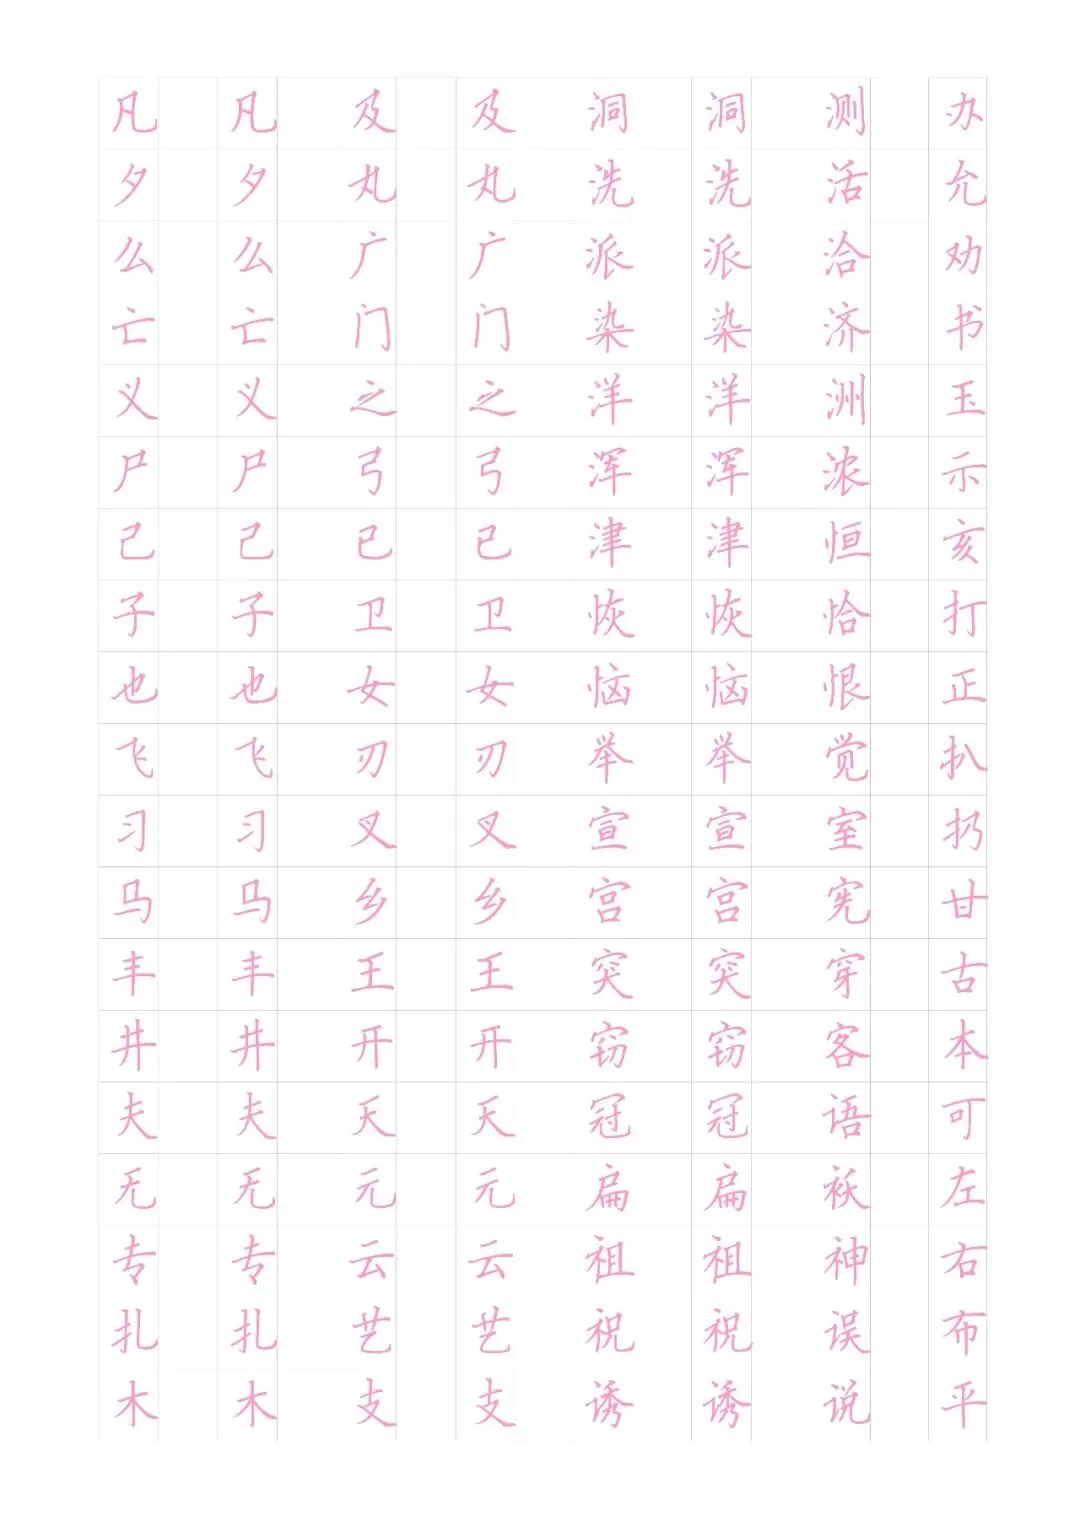 凡 凡 及 及 洞 洞 测 办
夕 夕 丸 丸 洗 洗 活 允
么 么 广 广 派 派 洽 劝
亡 亡 门 门 染 染 济 书
义 义 之 之 洋 洋 洲 玉
尸 尸 弓 弓 浑 浑 浓 示
己 己 已 已 津 津 恒 亥
子 子 卫 卫 恢 恢 恰 打
也 也 女 女 恼 恼 恨 正
飞 飞 刃 刃 举 举 觉 扒
习 习 叉 叉 宣 宣 室 扔
马 马 乡 乡 宫 宫 宪 甘
丰 丰 王 王 突 突 穿 古
井 井 开 开 窃 窃 客 本
夫 夫 天 天 冠 冠 语 可
无 无 元 元 扁 扁 袄 左
专 专 云 云 祖 祖 神 右
扎 扎 艺 艺 祝 祝 误 布
木 木 支 支 诱 诱 说 平